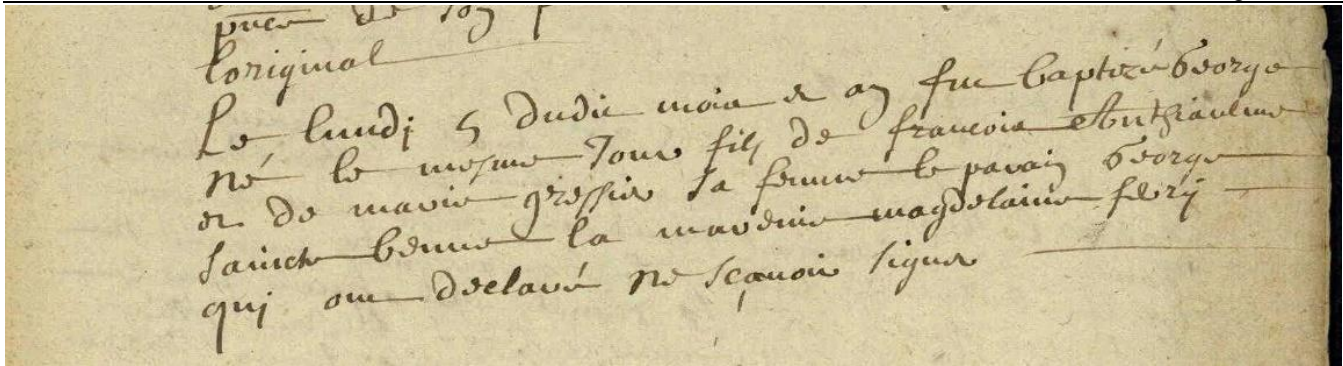 de son
l'original
Le lundi 5 dudit mois et an fut baptizé George
né le mesme Jour fils de francois
et de marie gressier sa femme le parain George
sainte benne la mareine magdelaine flery
qui ont declaré ne scavoir signer